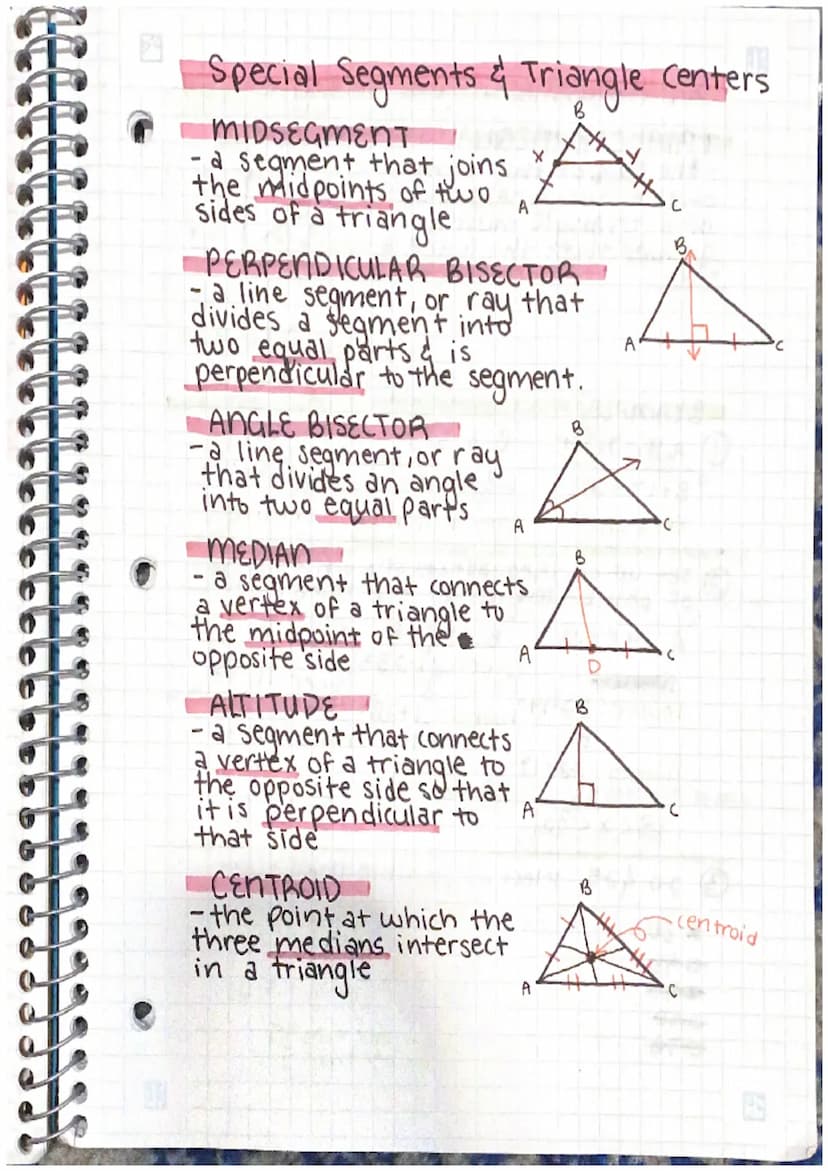 Special Segments & Triangle Centers
MIDSEGMENT
- a segment that joins
the midpoints of two
sides of a triangle
B
X
Y
A
C
PERPENDICULAR BISECTOR
- a line segment, or ray that
divides a segment into
two equal parts & is
perpendicular to the segment.
B
A
C
ANGLE BISECTOR
- a line segment, or ray
that divides an angle
into two equal parts
B
A
C
MEDIAN
- a segment that connects
a vertex of a triangle to
the midpoint of the
opposite side
B
A
C
D
ALTITUDE
- a segment that connects
a vertex of a triangle to
the opposite side so that
it is perpendicular to
that side
B
A
C
CENTROID
- the point at which the
three medians intersect
in a triangle
B
centroid
A
C